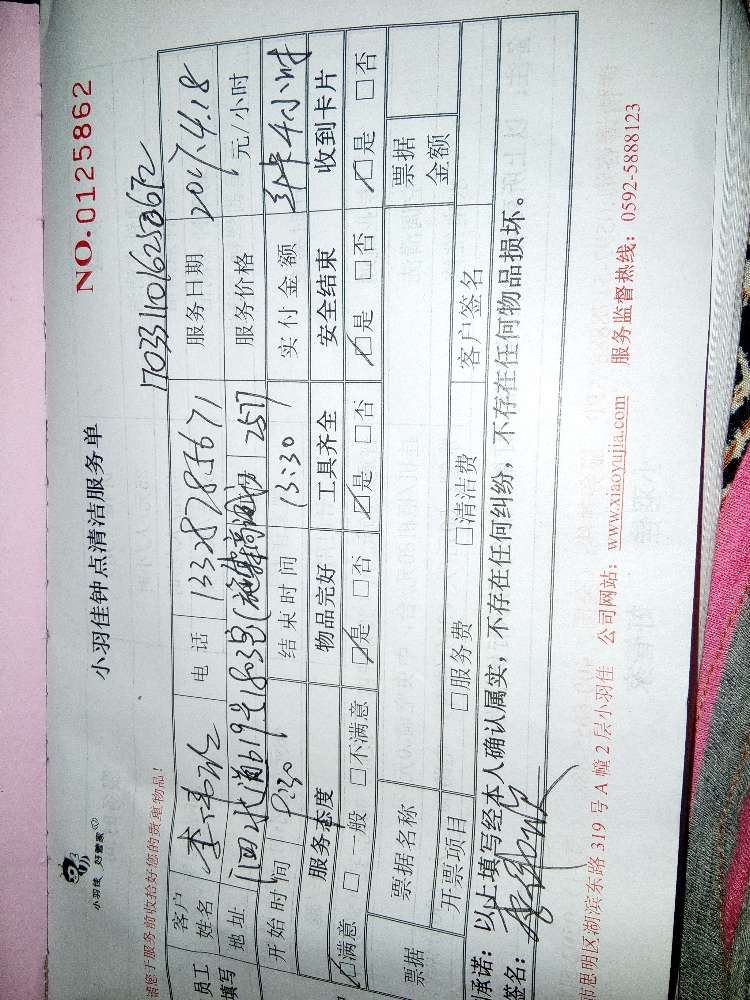 小羽佳 好管家
小羽佳钟点清洁服务单
NO.0125862
请您于服务前收拾好您的贵重物品!
员工填写 客户姓名 李 电话 13328785671 服务日期 2017.4.18
地址 泗水道619号1803室 服务价格 元/小时
开始时间 9:30 结束时间 13:30 实付金额 年卡4小时
服务态度 物品完好 工具齐全 安全结束 收到卡片
☑满意 □一般 □不满意 ☑是 □否 ☑是 □否 ☑是 □否 ☑是 □否
票据 票据名称 票据金额
开票项目 □服务费 □清洁费 客户签名
承诺:以上填写经本人确认属实,不存在任何纠纷,不存在任何物品损坏。
签名:
市思明区湖滨东路 319 号 A 幢 2 层小羽佳 公司网站:www.xiaoyujia.com 服务监督热线:0592-5888123